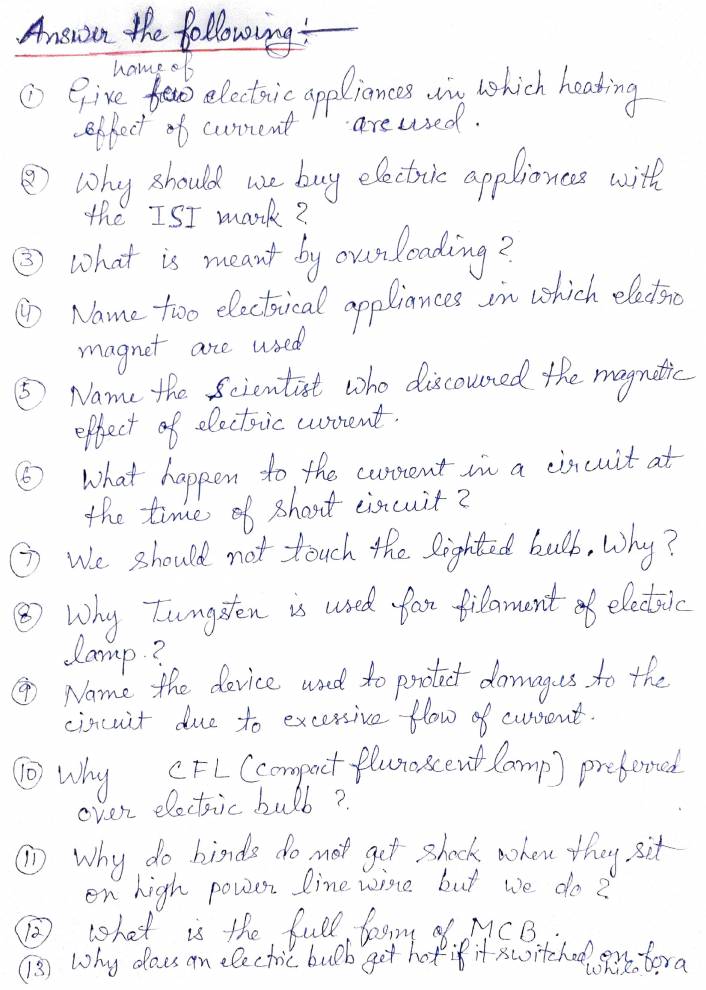 Answer the following :—
name of
① Give few electric appliances in which heating
effect of current are used.
② Why should we buy electric appliances with
the ISI mark?
③ What is meant by overloading?
④ Name two electrical appliances in which electro
magnet are used
⑤ Name the Scientist who discovered the magnetic
effect of electric current.
⑥ What happen to the current in a circuit at
the time of short circuit?
⑦ We should not touch the lighted bulb. Why?
⑧ Why Tungsten is used for filament of electric
lamp.?
⑨ Name the device used to protect damages to the
circuit due to excessive flow of current.
⑩ Why CFL (compact flurascent lamp) preferred
over electric bulb?
⑪ Why do birds do not get shock when they sit
on high power line wire but we do?
⑫ What is the full form of MCB.
(13) Why does an electric bulb get hot if it switched on for a
while?